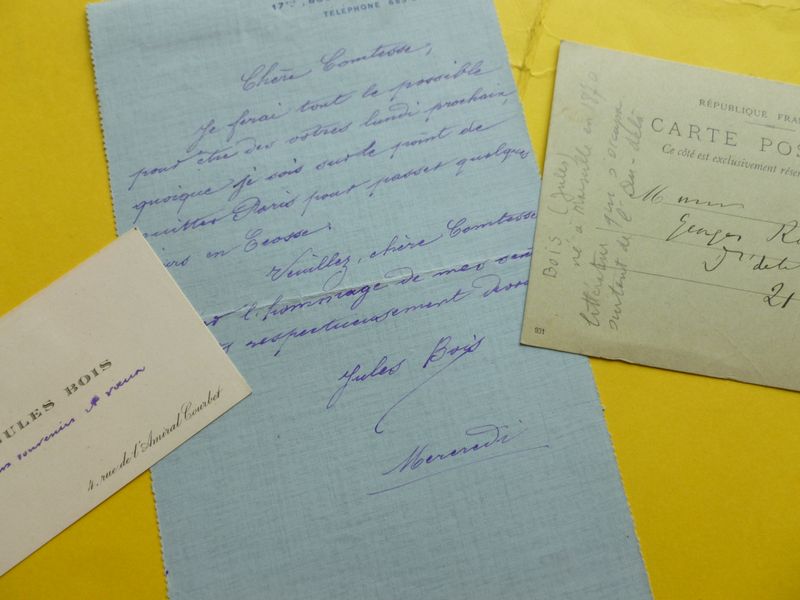 TÉLÉPHONE
Chère Comtesse,
Je ferai tout le possible
pour être des vôtres lundi prochain,
quoique je sois sur le point de
quitter Paris pour passer quelques
en Ecosse.
Veuillez, chère Comtesse
l'hommage de mes
respectueusement
Jules Bois
Mercredi
JULES BOIS
souvenirs et vœux
4, rue de l'Amiral Courbet
RÉPUBLIQUE FRA
CARTE POS
Ce côté est exclusivement réser
Georges
21
BOIS (Jules)
né à Marseille en 1870
littérateur qui s'occupa
surtout de l'Au-delà